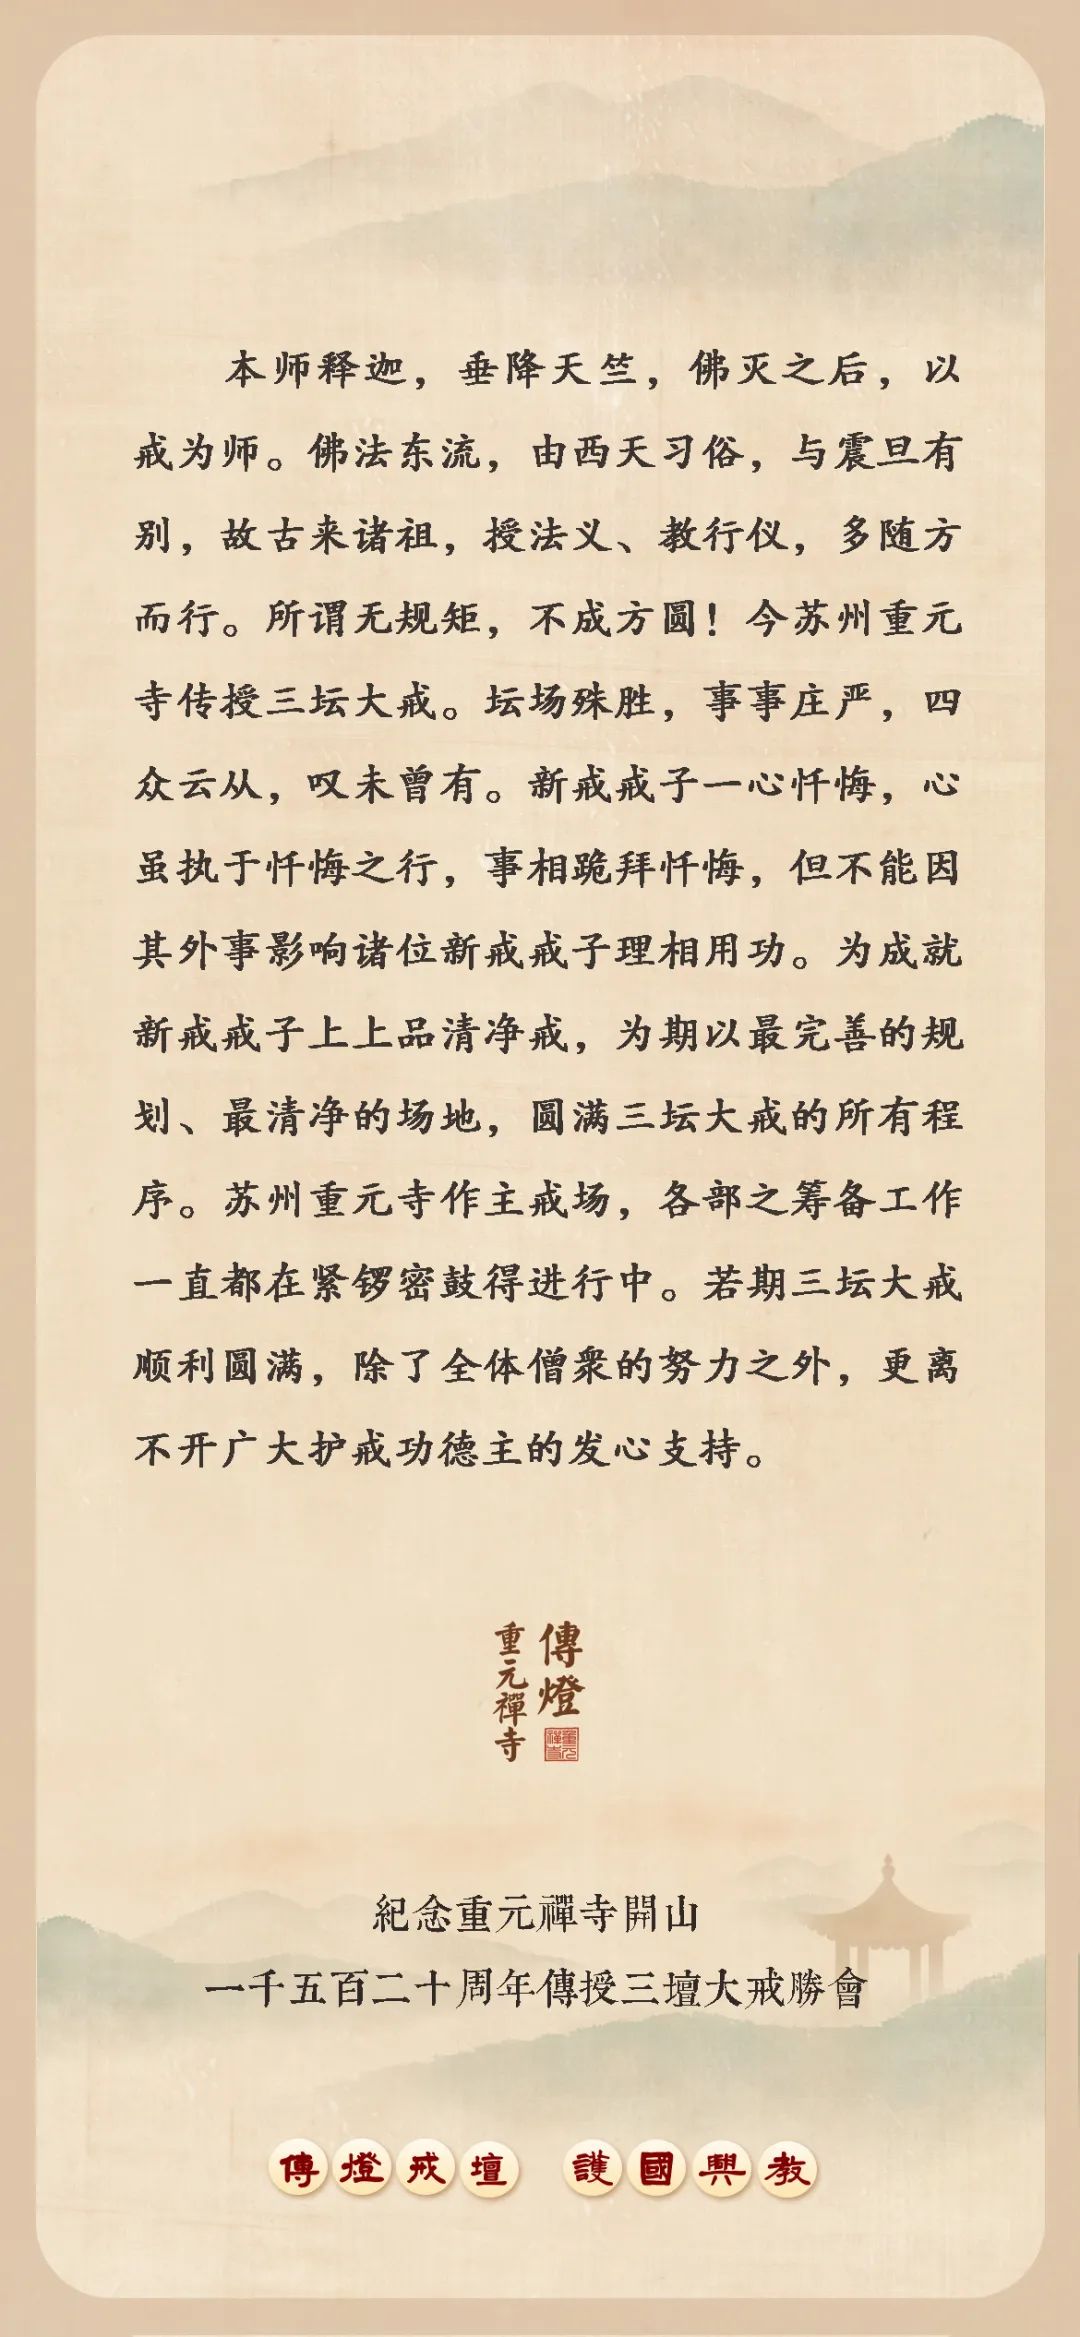 本师释迦，垂降天竺，佛灭之后，以
戒为师。佛法东流，由西天习俗，与震旦有
别，故古来诸祖，授法义、教行仪，多随方
而行。所谓无规矩，不成方圆！今苏州重元
寺传授三坛大戒。坛场殊胜，事事庄严，四
众云从，叹未曾有。新戒戒子一心忏悔，心
虽执于忏悔之行，事相跪拜忏悔，但不能因
其外事影响诸位新戒戒子理相用功。为成就
新戒戒子上上品清净戒，为期以最完善的规
划、最清净的场地，圆满三坛大戒的所有程
序。苏州重元寺作主戒场，各部之筹备工作
一直都在紧锣密鼓得进行中。若期三坛大戒
顺利圆满，除了全体僧衆的努力之外，更离
不开广大护戒功德主的发心支持。
傳燈
重元禪寺
重元禪寺
紀念重元禪寺開山
一千五百二十周年傳授三壇大戒勝會
傳燈戒壇 護國興教